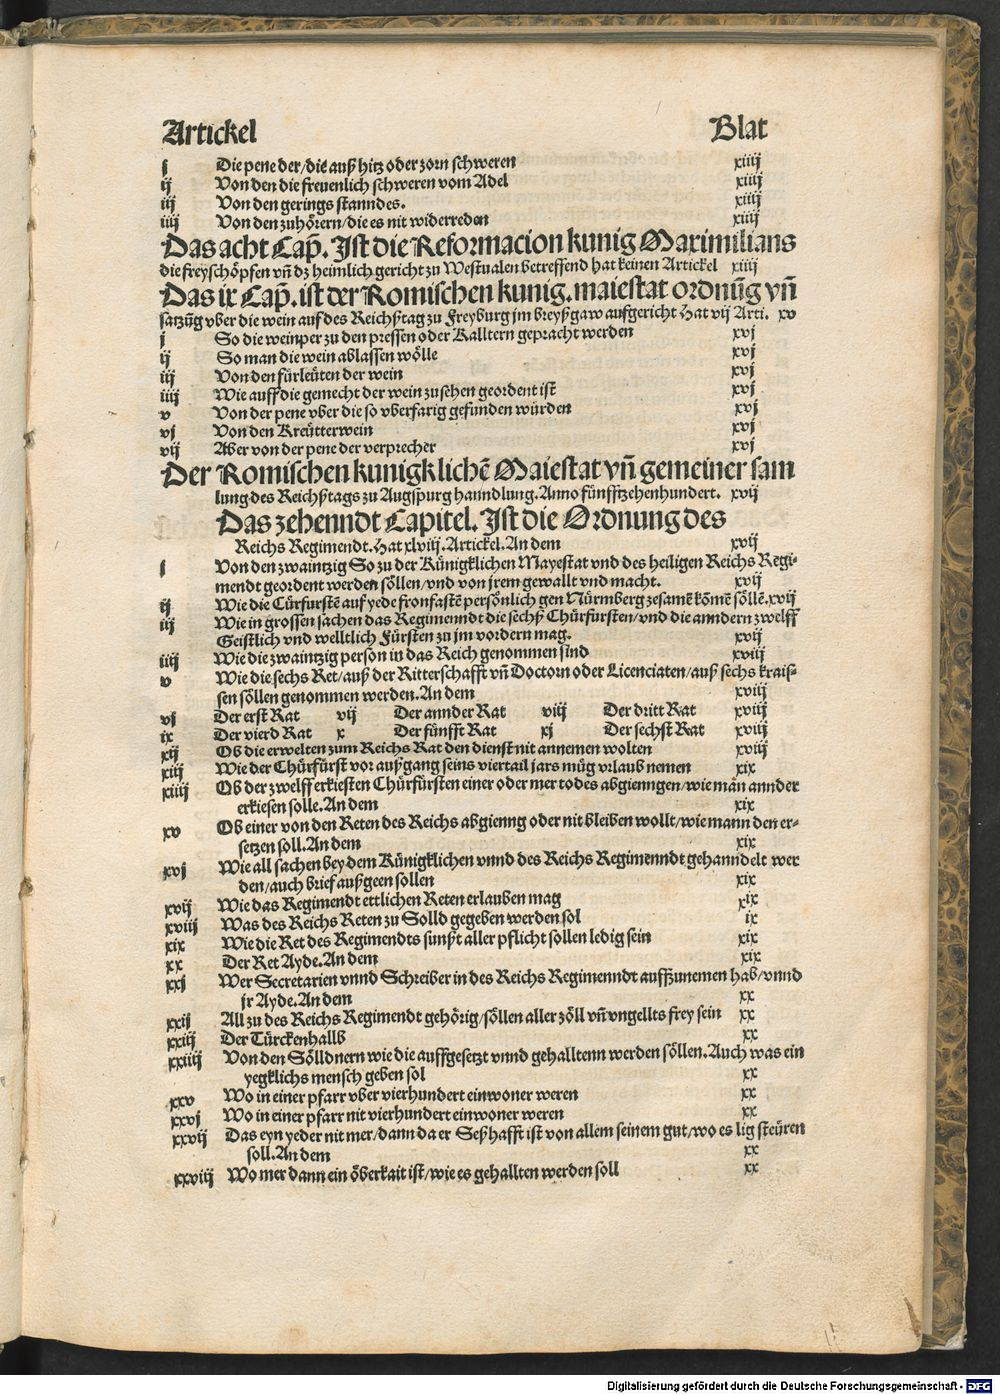 Artickel Blat
j Die pene der/die auß hitz oder zorn schweren xiiij
ij Von den die freuenlich schweren vom Adel xiiij
iij Von den gerings stanndes. xiiij
iiij Von den zuhörern/die es nit widerreden xiiij
Das acht Cap̃. Ist die Reformacion kunig Maximilians
die freyschöpfen vñ dz heimlich gericht zu Westualen betreffend hat keinen Artickel xiiij
Das ix Cap̃. ist der Romischen kunig. maiestat ordnũg vñ
satzũg vber die wein auf des Reichßtag zu Freyburg jm breyßgaw aufgericht Hat vij Arti. xv
j So die weinper zu den pressen oder Kalltern gepracht werden xvj
ij So man die wein ablassen wölle xvj
iij Von den fürleüten der wein xvj
iiij Wie auff die gemecht der wein zusehen geordent ist xvj
v Von der pene vber die so vberfarig gefunden würden xvj
vj Von den Kreütterwein xvj
vij Aber von der pene der verprecher xvj
Der Romischen kunigklichẽ Maiestat vñ gemeiner sam
lung des Reichßtags zu Augspurg hanndlung. Anno fünfftzehenhundert. xvij
Das zehenndt Capitel. Ist die Ordnung des
Reichs Regimendt. Hat xlviij. Artickel. An dem xvij
j Von den zwaintzig So zu der Künigklichen Mayestat vnd des heiligen Reichs Regi-
mendt geordent werden söllen/vnd von jrem gewallt vnd macht. xvij
ij Wie die Cürfurstẽ auf yede fronfastẽ persönlich gen Nürmberg zesamẽ kõmẽ söllẽ. xvij
iij Wie in grossen sachen das Regimenndt die sechß Chürfürsten/vnd die anndern zwelff
Geistlich vnd welltlich Fürsten zu jm vordern mag. xvij
iiij Wie die zwaintzig person in das Reich genommen sind xviij
v Wie die sechs Ret/auß der Ritterschafft vñ Doctorn oder Licenciaten/auß sechs krais-
sen söllen genommen werden. An dem xviij
vj Der erst Rat vij Der annder Rat viij Der dritt Rat xviij
ix Der vierd Rat x Der fünfft Rat xj Der sechst Rat xviij
xij Ob die erwelten zum Reichs Rat den dienst nit annemen wolten xviij
xiij Wie der Chürfürst vor außgang seins viertail jars müg vrlaub nemen xix
xiiij Ob der zwelff erkiesten Chürfürsten einer oder mer todes abgienngen/wie man annder
erkiesen solle. An dem xix
xv Ob einer von den Reten des Reichs abgienng oder nit bleiben wollt/wie mann den er-
setzen soll. An dem xix
xvj Wie all sachen bey dem Künigklichen vnnd des Reichs Regimenndt gehanndelt wer
den/auch brief außgeen sollen xix
xvij Wie das Regimendt ettlichen Reten erlauben mag xix
xviij Was des Reichs Reten zu Solld gegeben werden sol ix
xix Wie die Ret des Regimendts sunßt aller pflicht sollen ledig sein xix
xx Der Ret Ayde. An dem xix
xxj Wer Secretarien vnnd Schreiber in des Reichs Regimenndt auffzunemen hab/vnnd
jr Ayde. An dem xx
xxij All zu des Reichs Regimendt gehörig/söllen aller zöll vñ vngellts frey sein xx
xxiij Der Türckenhallb xx
xxiiij Von den Sölldnern wie die auffgesetzt vnnd gehalltenn werden söllen. Auch was ein
yegklichs mensch geben sol xx
xxv Wo in einer pfarr vber vierhundert einwoner weren xx
xxvj Wo in einer pfarr nit vierhundert einwoner weren xx
xxvij Das eyn yeder nit mer/dann da er Seßhafft ist von allem seinem gut/wo es lig steüren
soll. An dem xx
xxviij Wo mer dann ein öberkait ist/wie es gehallten werden soll xx
Digitalisierung gefördert durch die Deutsche Forschungsgemeinschaft - DFG